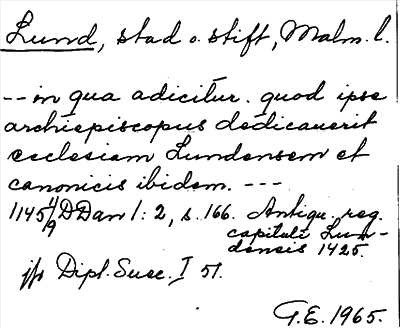 Lund, stad o. stift, Malm. l.
-- in qua adicitur. quod ipse
archiepiscopus dedicauerit
ecclesiam Lundensem et
canonicis ibidem. ---
1145 1/9 DDan 1: 2, s. 166. Antiqu. reg.
capituli Lun-
densis 1425.
jfr Dipl. Suec. I 51.
G.E. 1965.